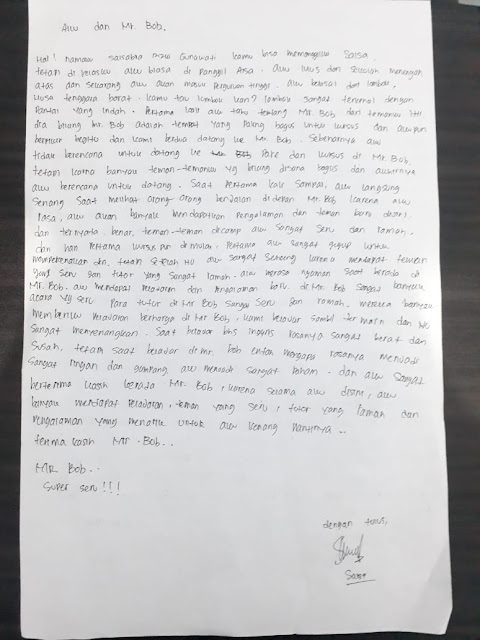 Aku dan Mr. Bob.
Hai! namaku salsabila Gunawati kamu bisa memanggilku Salsa
tetapi di kelasku aku biasa di panggil Arsa. aku lulus dari sekolah menengah
atas dan sekarang aku akan masuk perguruan tinggi. aku berasal dari lombok,
nusa tenggara barat. kamu tau lombok kan? lombok sangat terkenal dengan
Pantai yang indah. Pertama kali aku tau tentang Mr Bob dari temanku
dia bilang Mr. Bob adalah tempat yang Paling bagus untuk kursus dan akupun
berfikir begitu dan kami berdua datang ke Mr Bob. Sebenarnya aku
tidak berencana untuk datang ke Pare dan kursus di Mr. Bob,
tetapi karna banyak teman-temanku yg bilang disana bagus dan akhirnya
aku berencana untuk datang. Saat Pertama kali sampai, aku langsing
senang saat melihat orang-orang berjalan di depan Mr. Bob karena aku
rasa, aku akan banyak mendapatkan Pengalaman dan teman baru disini.
dan ternyata benar, teman-teman dicamp aku sangat seru dan ramah.
dan hari Pertama kursus pun di mulai. Pertama aku sangat gugup untuk
memperkenalkan diri, tetapi setelah itu aku sangat senang karena mendapat teman
yang seru dan tutor yang sangat ramah. aku merasa nyaman saat berada di
dan aku mendapat pelajaran dan Pengalaman baru. di Mr Bob sangat banyak
acara yg seru. Para tutor di Mr Bob sungguh seru dan ramah. mereka banyak
memberiku Pelajaran berharga di Mr Bob, kami belajar sambil bermain dan itu
sangat menyenangkan. Saat belajar bhs inggris rasanya sangat berat dan
susah, tetapi saat belajar di mr. bob entah mengapa rasanya menjadi
sangat ringan dan gampang aku menjadi sangat Paham. dan aku sangat
berterima kasih kepada Mr. Bob, karena selama aku disini, aku
banyak mendapat Pelajaran, teman yang seru, tutor yang ramah dan
Pengalaman yang menarik untuk aku kenang nantinya...
terima kasih Mr. Bob..
MR Bob..
Super seru!!!
dengan tulus,
Salsa